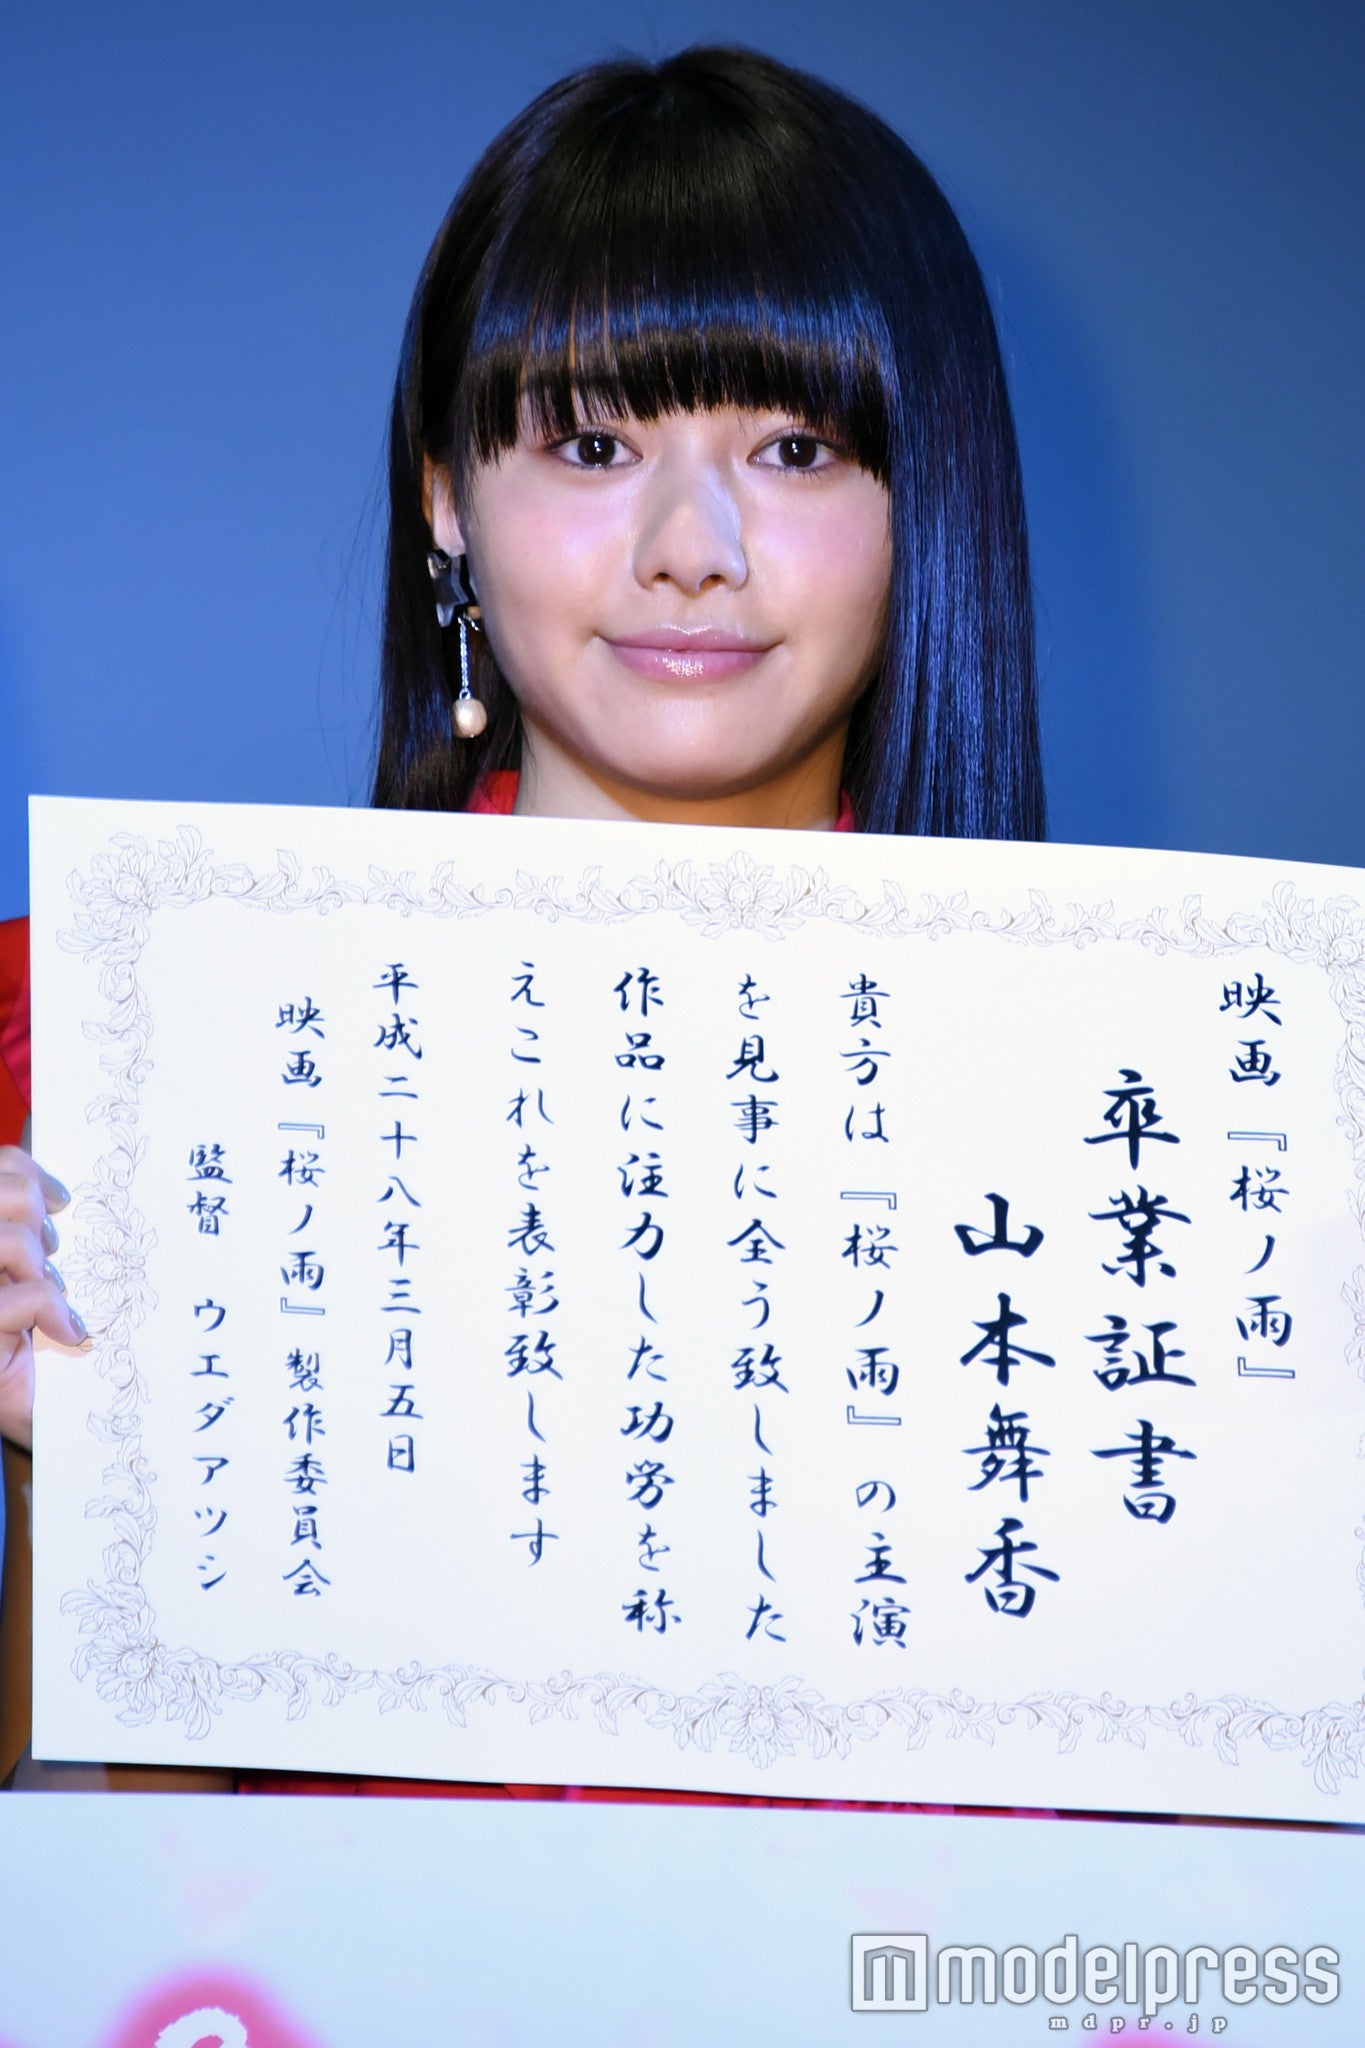 映画『桜ノ雨』
卒業証書
山本舞香
貴方は『桜ノ雨』の主演
を見事に全う致しました
作品に注力した功労を称
えこれを表彰致します
平成二十八年三月五日
映画『桜ノ雨』製作委員会
監督 ウエダアツシ
modelpress
mdpr.jp